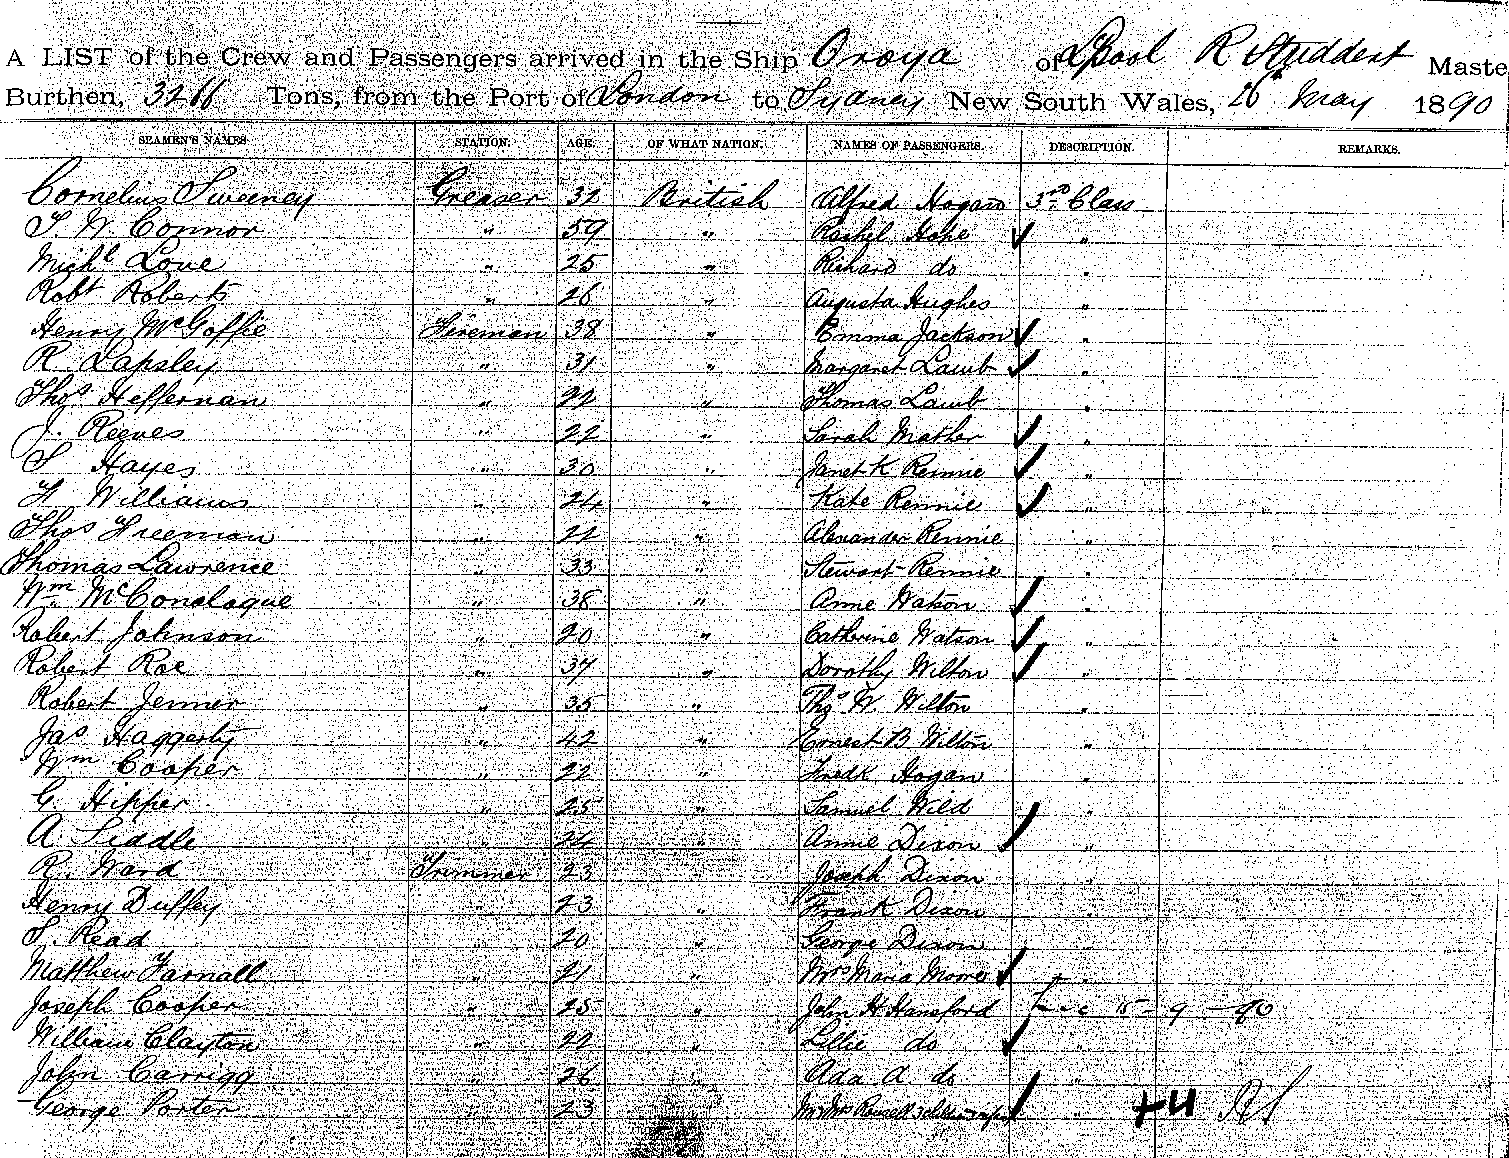 A LIST of the Crew and Passengers arrived in the Ship Oroya of LPool R Studdert Maste
Burthen, 3266 Tons, from the Port of London to Sydney New South Wales, 26th May 1890
SEAMEN'S NAMES STATION. AGE. OF WHAT NATION. NAMES OF PASSENGERS. DESCRIPTION. REMARKS.
Cornelius Sweeney Greaser 32 British Alfred Hogan 3rd Class
T. W. Connor " 59 " Rachel Hope "
Michl Love " 25 " Richard do "
Robt Roberts " 26 " Augusta Hughes "
Henry McGoffie Fireman 38 " Emma Jackson "
R Lapsley " 31 " Margaret Lamb "
Thos Heffernan " 22 " Thomas Lamb "
J. Reeves " 22 " Sarah Mather "
S Hayes " 30 " Janet K Rennie "
H Williams " 24 " Kate Rennie "
Thos Freeman " 22 " Alexander Rennie "
Thomas Lawrence " 33 " Stewart Rennie "
Wm McConologue " 38 " Anne Watson "
Robert Johnson " 20 " Catherine Watson "
Robert Roe " 37 " Dorothy Wilton "
Robert Jenner " 35 " Thos W Wilton "
Jas Haggerty " 42 " Ernest B Wilton "
Wm Cooper " 22 " Fredk Hogan "
G. Hipper " 25 " Samuel Wild "
A Liddle " 24 " Annie Dixon "
R. Ward Trimmer 23 " Joseph Dixon "
Henry Duffey " 23 " Frank Dixon "
S. Read " 20 " George Dixon "
Matthew Farnall " 21 " Mrs Maria Moore "
Joseph Cooper " 25 " John H Hansford 15-9-90
William Clayton " 22 " Lillie do "
John Carrigg " 26 " Ada A do "
George Porter " 23 " Mr Mrs Russell " +4